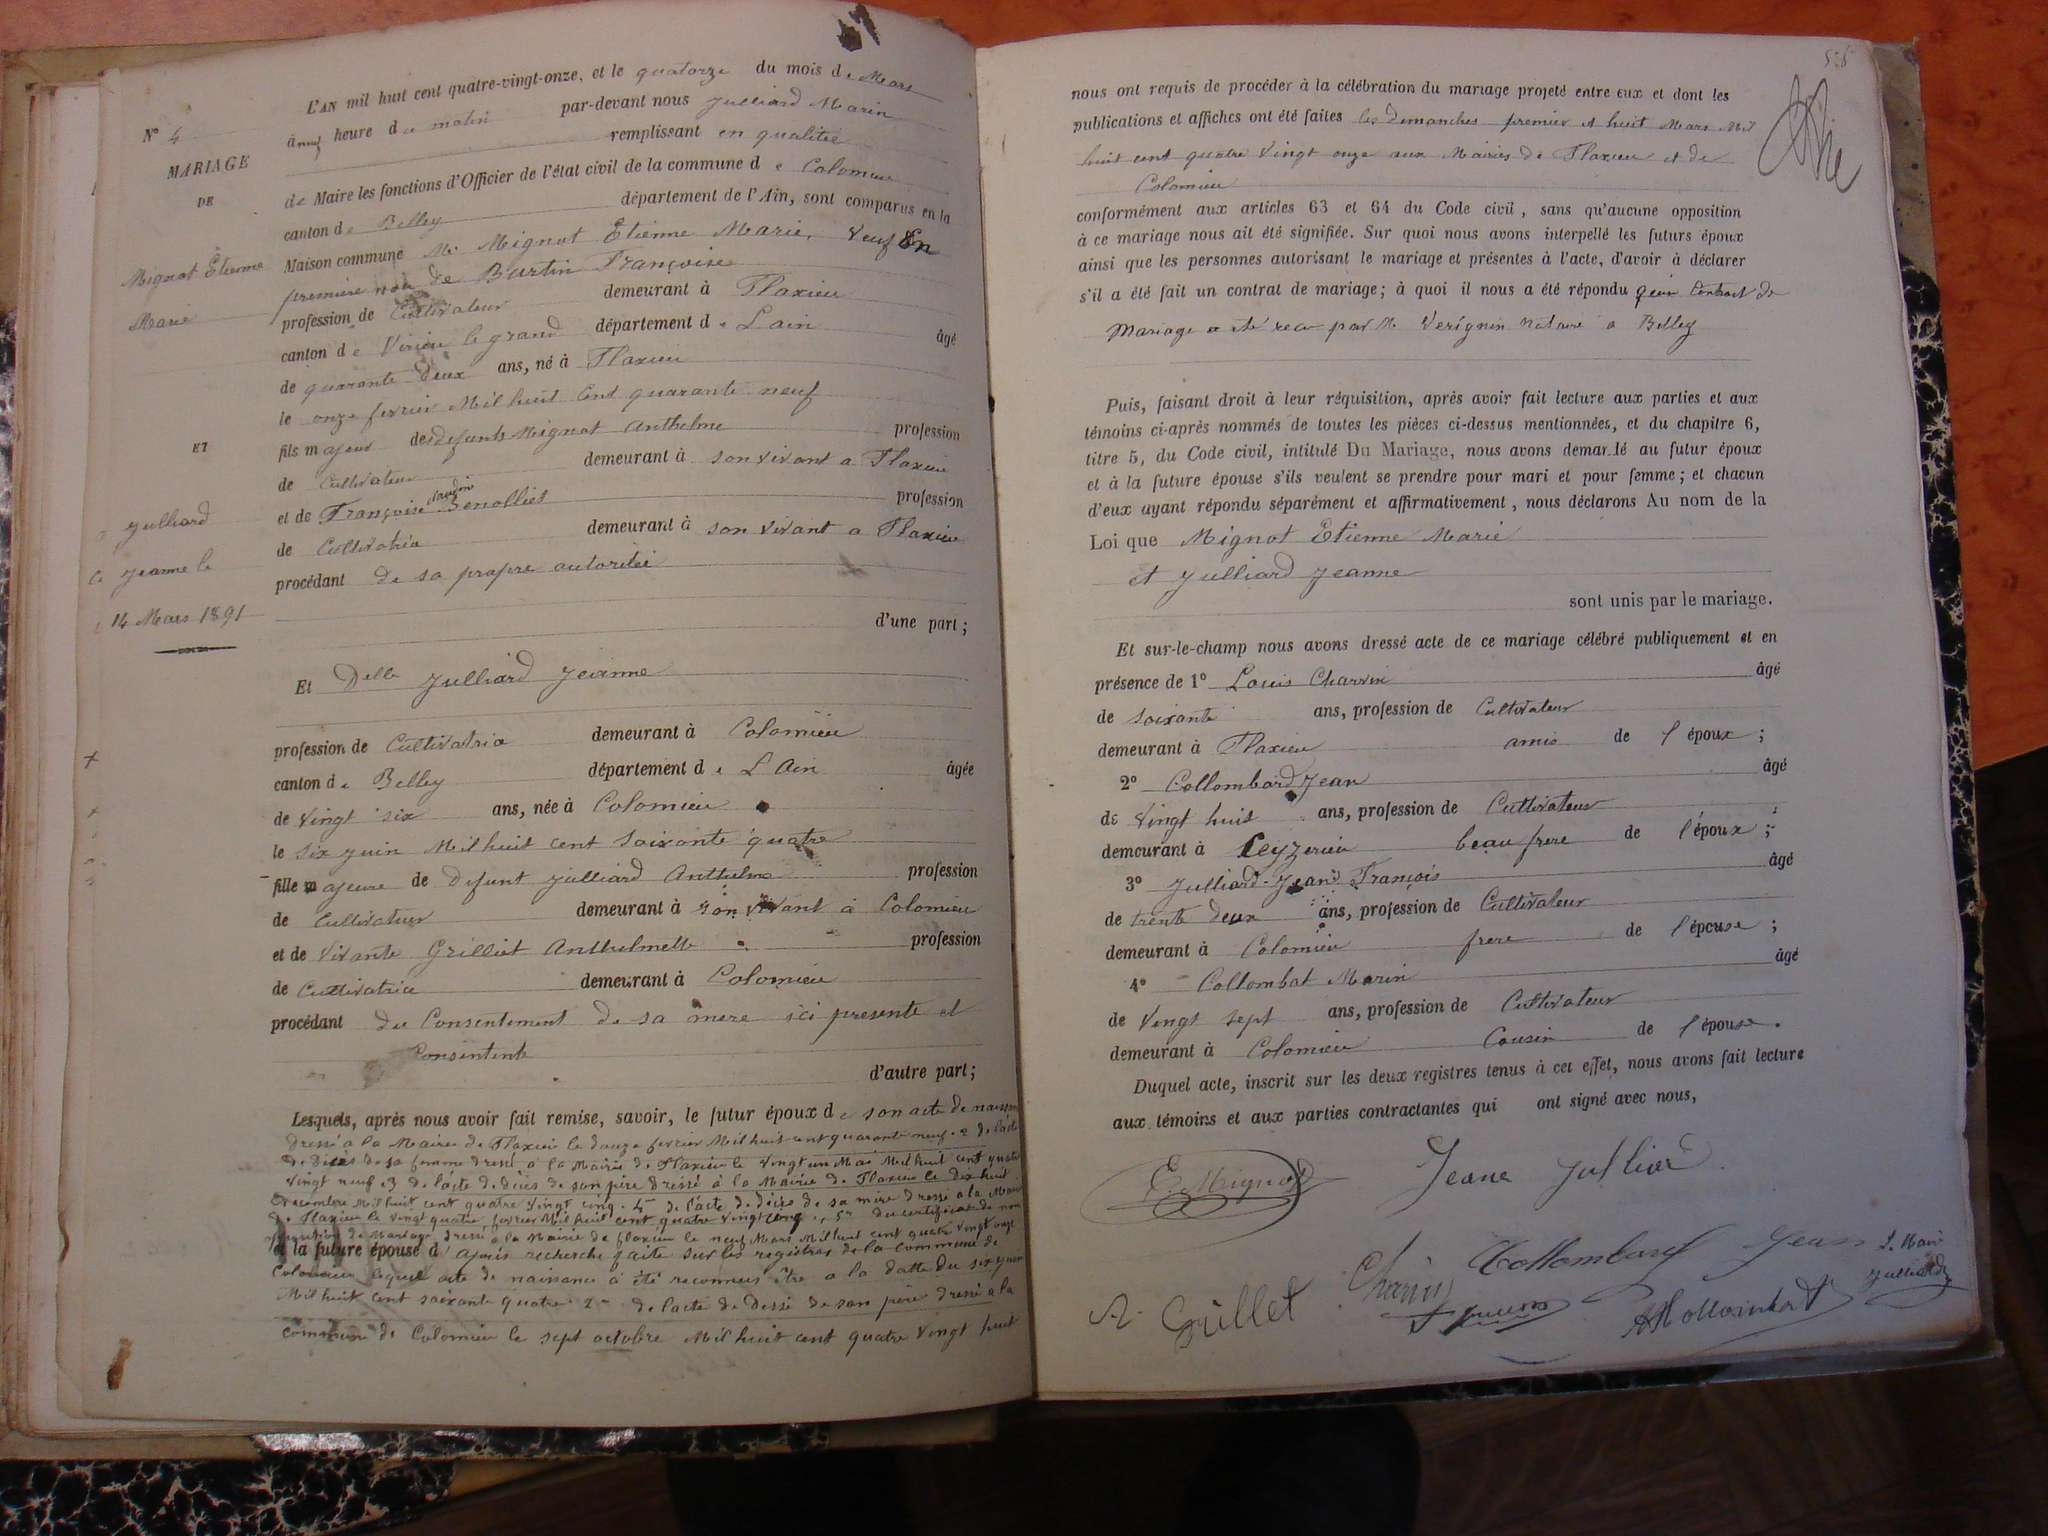 L'AN mil huit cent quatre-vingt-onze, et le quatorze du mois de Mars
à neuf heure du matin par-devant nous Julliard Marin
remplissant en qualitée
de Maire les fonctions d'Officier de l'état civil de la commune de Colomieu
canton de Belley département de l'Ain, sont comparus en la
Maison commune Mr Mignot Etienne Marie, Veuf En
première noce de Burtin Françoise
profession de Cultivateur demeurant à Flaxieu
canton de Virieu le grand département de Lain âgé
de quarante deux ans, né à Flaxieu
le onze fevrier Mil huit Cent quarante neuf
fils majeur des defunts Mignot Anthelme profession
de Cultivateur demeurant à son vivant a Flaxieu
et de Françoise Benolliet profession
de Cultivatrice demeurant à son vivant a Flaxieu
procédant de sa propre autoritée
d'une part;
Et Delle Julliard Jeanne
profession de Cultivatrice demeurant à Colomieu
canton de Belley département de L Ain âgée
de Vingt six ans, née à Colomieu
le six Juin Mil huit cent Soixante quatre
fille majeure de Defunt Julliard Anthelme profession
de Cultivateur demeurant à son vivant à Colomieu
et de Vivante Grilliet Anthelmette profession
de Cultivatrice demeurant à Colomieu
procédant du Consentement de sa mere ici presente et
Consentente
d'autre part;
Lesquels, après nous avoir fait remise, savoir, le futur époux de son acte de naissance
dressé a la Mairie de Flaxieu le douze fevrier Mil huit cent quarante neuf. 2 de l'acte
de Décès de sa femme dressé a la Mairie de Flaxieu le Vingt un Mai Mil huit cent quatre
Vingt neuf. 3 de l'acte de décès de son père dressé à la Mairie de Flaxieu le Dix huit
Mil huit cent quatre Vingt cinq. 4 de l'acte de décès de sa mère dressé a la Mairie
de Flaxieu le Vingt quatre fevrier Mil huit cent quatre Vingt cinq, 5 du certificat de non
opposition de Mariage dressé a la Mairie de Flaxieu le neuf Mars Mil huit cent quatre Vingt onze
et la future épouse d après recherche faite sur les registres de la commune de
Colomieu lequel acte de naissance à été reconnus être a la datte du six Juin
Mil huit Cent soixante quatre 2 de l'acte de Dessé de son père dressé a la
commune de Colomieu le sept octobre Mil huit cent quatre Vingt huit
N° 4
MARIAGE
DE
Mignot Étienne
Marie
ET
Julliard
Jeanne le
14 Mars 1891
nous ont requis de procéder à la célébration du mariage projeté entre eux et dont les
publications et affiches ont été faites les dimanches premier et huit Mars Mil
huit cent quatre Vingt onze aux Mairies de Flaxieu et de
Colomieu
conformément aux articles 63 et 64 du Code civil, sans qu'aucune opposition
à ce mariage nous ait été signifiée. Sur quoi nous avons interpellé les futurs époux
ainsi que les personnes autorisant le mariage et présentes à l'acte, d'avoir à déclarer
s'il a été fait un contrat de mariage; à quoi il nous a été répondu qu'un Contract de
Mariage a été recu par Me Verignin Notaire a Belley
Puis, faisant droit à leur réquisition, après avoir fait lecture aux parties et aux
témoins ci-après nommés de toutes les pièces ci-dessus mentionnées, et du chapitre 6,
titre 5, du Code civil, intitulé Du Mariage, nous avons demandé au futur époux
et à la future épouse s'ils veulent se prendre pour mari et pour femme; et chacun
d'eux ayant répondu séparément et affirmativement, nous déclarons Au nom de la
Loi que Mignot Etienne Marie
et Julliard Jeanne
sont unis par le mariage.
Et sur-le-champ nous avons dressé acte de ce mariage célébré publiquement et en
présence de 1° Louis Charvin âgé
de soixante ans, profession de Cultivateur
demeurant à Flaxieu amis de l'époux;
2° Collombard Jean âgé
de Vingt huit ans, profession de Cultivateur
demeurant à Ceyzerieu beau frere de l'époux;
3° Julliard Jean François âgé
de trente deux ans, profession de Cultivateur
demeurant à Colomieu frere de l'épouse;
4° Collombat Marin âgé
de Vingt sept ans, profession de Cultivateur
demeurant à Colomieu Cousin de l'épouse.
Duquel acte, inscrit sur les deux registres tenus à cet effet, nous avons fait lecture
aux témoins et aux parties contractantes qui ont signé avec nous,
E. Mignot Jeane Julliard
Collombard Jean
Charvin
A. Grillet
Julliard